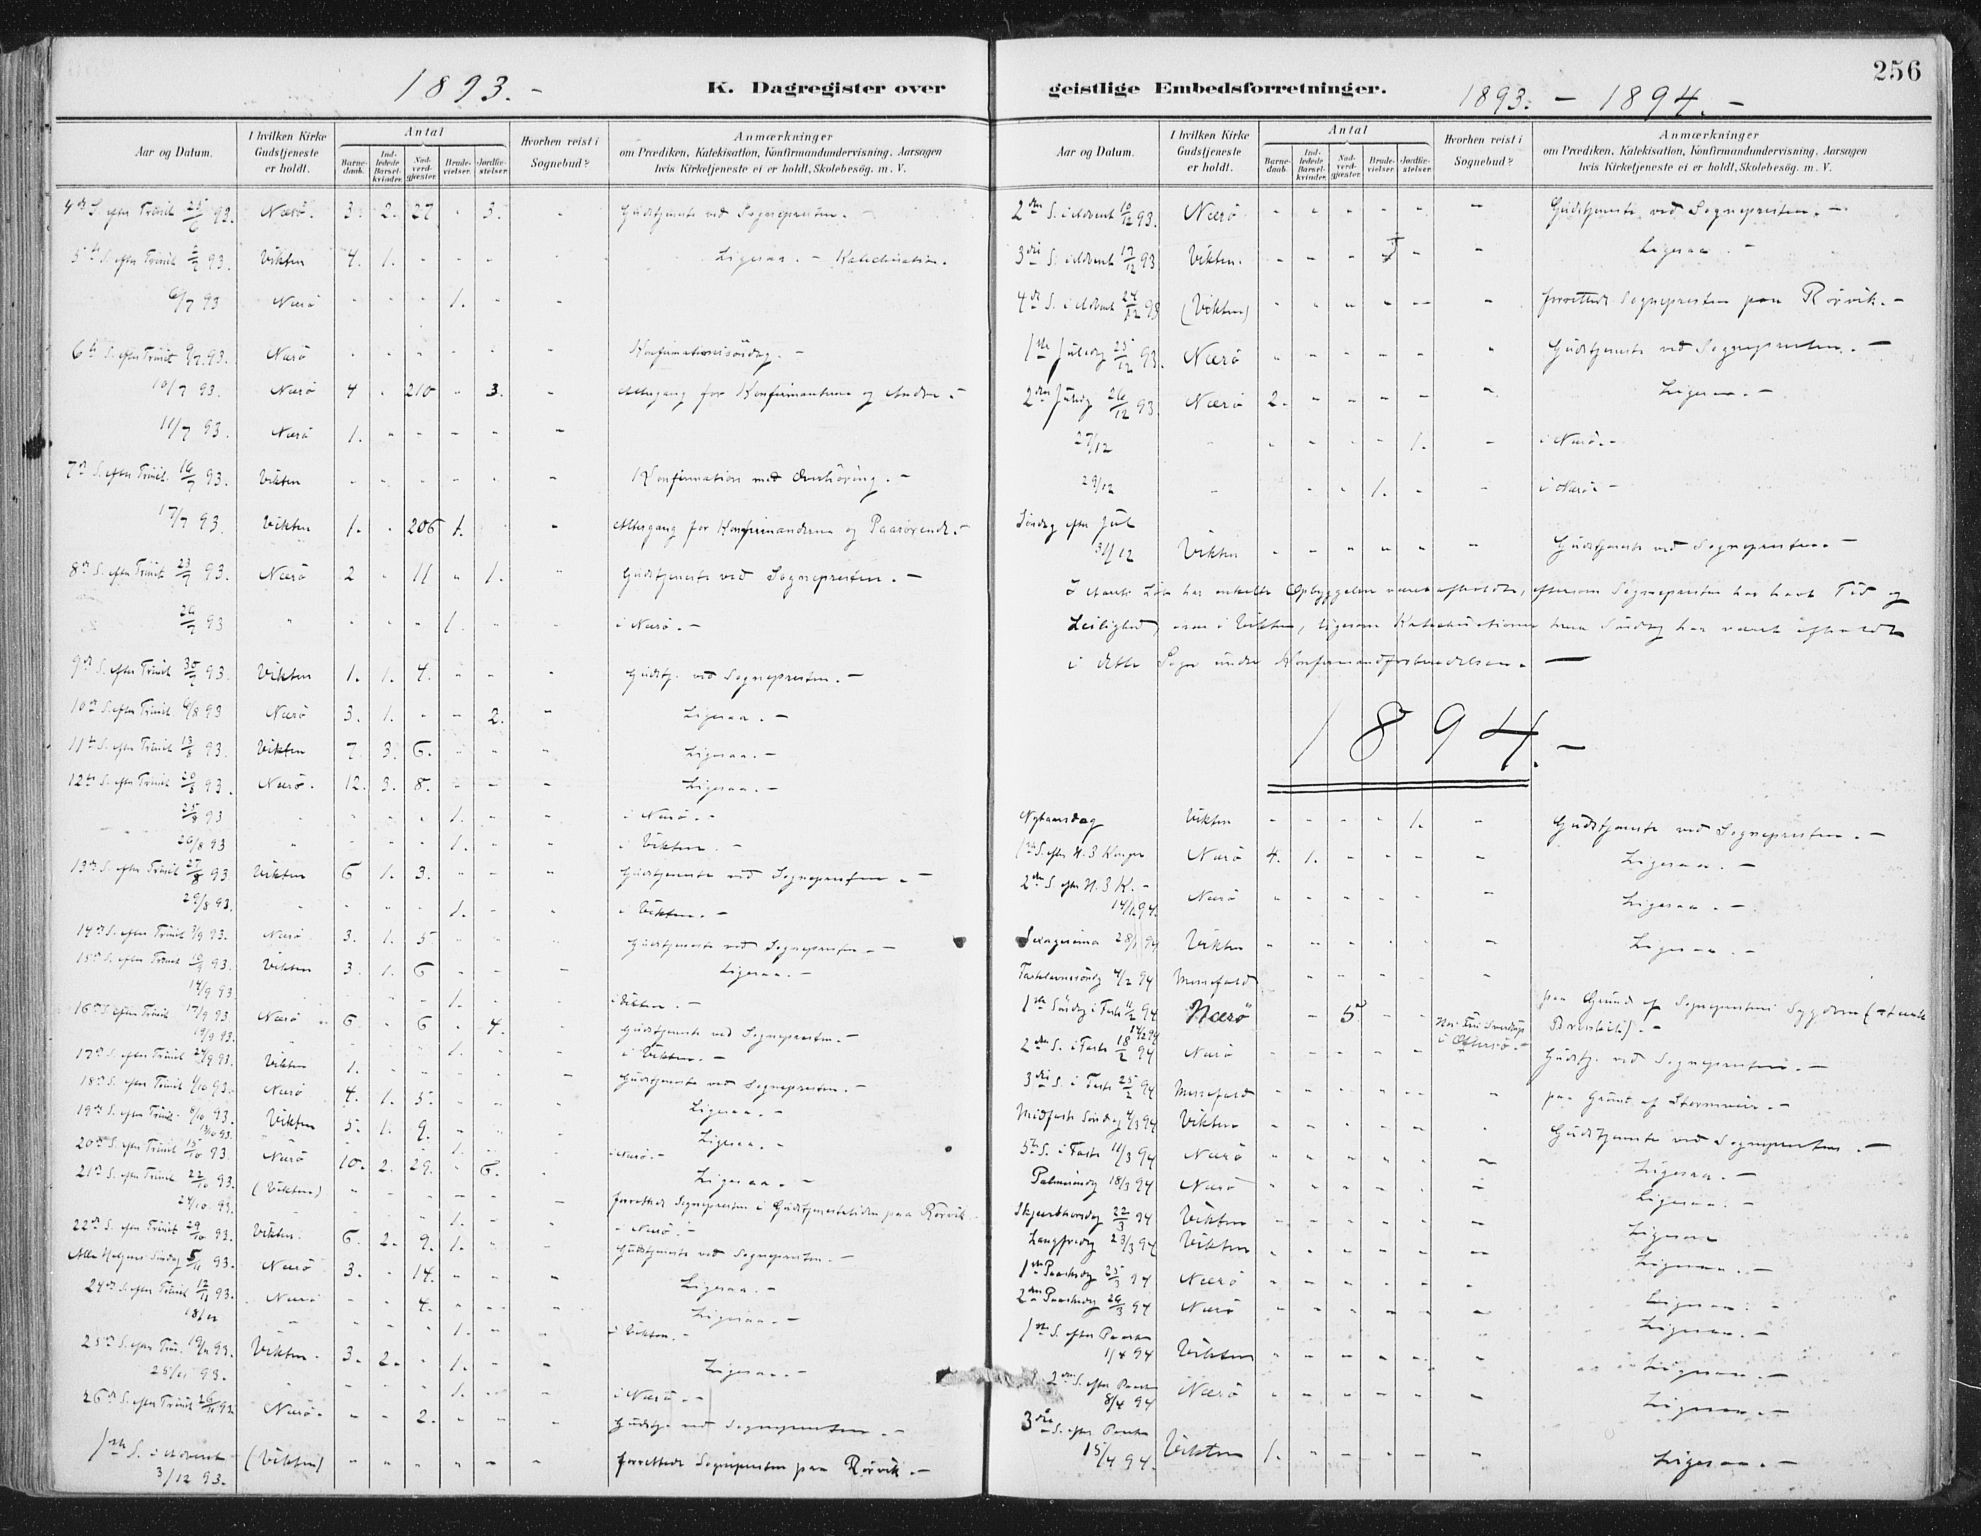 1893. -
K. Dagregister over
Aar og Datum. I hvilken Kirke Gudstjeneste er holdt. Antal Barnedaab. Indledede Barselkvinder. Nadverdgjæster. Brudevielser. Jordfæstelser. Hvorhen reist i Sognebud? Anmærkninger om Prædiken, Katekisation, Konfirmandundervisning, Aarsagen hvis Kirketjeneste ei er holdt, Skolebesøg. m. V.
4de S. efter Trinit 25/6 93. Nærö. 3. 2. 27 " 3. " Gudstjeneste ved Sognepresten. -
5te S. efter Trinit 2/7 93. Vikten 4. 1. " " " " Ligesaa. - Katechisation.
6/7 93 Nærö " " " 1. " "
6te S. efter Trinit 9/7.93. Nærö " " " " " " Konfirmationssöndag. -
10/7 93. Nærö 4 " 210 " 3. " Altergang for Konfirmanterne og Andre. -
11/7 93. Nærö 1. " " " " "
7de S. efter Trinit. 16/7 93. Vikten " " " " " " Konfirmation med Overhöring. -
17/7 93. Vikten 1. " 206 1. " Altergang for Konfirmanderne og Paarörende. -
8de S. efter Trinit 23/7 93. Nærö 2 " 11 " 1. " Gudstjeneste ved Sognepresten. -
26/7 93 " " " " 1. " " i Nærö. -
9de S. efter Trinit 30/7 93. Vikten 1. 1. 4. " " " Gudstj. ved Sognepresten. -
10de S. efter Trinit 6/8 93 Nærö 3. 1. " " 2. " Ligesaa. -
11te S. efter Trinit 13/8 93. Vikten 7. 3. 6. " " " Ligesaa. -
12te S. efter Trinit 20/8 93. Nærö. 12. 3. 8. " " " Ligesaa. -
25/8 93 " " " " 1. " " i Nærö. -
26/8 93 " " " " 1. " " i Vikten. -
13de S. efter Trinit 27/8 93 Vikten 6 1. 3. " " " Gudstjeneste ved Sognepresten. -
29/8 93. " " " " 1. " " i Vikten. -
14de S. efter Trinit 3/9 93. Nærö 3. 1. 5 " " " Gudstjeneste ved Sognepresten. -
15de S. efter Trinit 10/9 93. Vikten 3. 1. 6 " " " Ligesaa. -
14/9 93. " " " 1. " " i Vikten. -
16de S. efter Trinit 17/9 93 Nærö 6. " 6 " 4. " Gudstjeneste ved Sognepresten. -
19/9 93. " " " 1. " " i Vikten. -
17de S. efter Trinit 24/9 93. Vikten 1. " " " " " Gudstjeneste ved Sognepresten. -
18de S. efter Trinit 1/10 93. Nærö 4. 1. 5. " " " Ligesaa. -
19de S. efter Trinit 8/10 93. Vikten 5. 1. 9. " " " Ligesaa. -
13/10 93. " " " 1. " " i Nærö. -
20de S. efter Trinit 15/10 93 Nærö 10. 2. 29. " 6. " Ligesaa. -
21de S. efter Trinit 22/10 93. (Vikten) " " " " " " forrettede Sognepresten i Gudstjenestetiden paa Rörvik. -
24/10 93. " " " 1. " " i Nærö. -
22de S. efter Trinit 29/10 93. Vikten. 6. 2. 9. 1. " " Gudstjeneste ved Sognepresten. -
Alle Helgens Söndag 5/11 93. Nærö 3. " 14. " " " Ligesaa. -
24de S. efter Trinit 12/11 93. Nærö " " 4. " " " Ligesaa. -
18/11 " " " " 1. " " i Vikten. -
25de S. efter Trin. 19/11 93. Vikten. 3. 2. " 1. " " Ligesaa. -
25/11 93. " " " 1. " " i Nærö. -
26de S. efter Trinit 26/11 93. Nærö. " " 2. " " " Gudstj. ved Sognepresten. -
1ste S. i Advent 3/12 93. (Vikten) " " " " " " forrettede Sognepresten paa Rörvik. -
256
geistlige Embedsforretninger.
1893. - 1894. -
Aar og Datum. I hvilken Kirke Gudstjeneste er holdt. Antal Barnedaab. Indledede Barselkvinder. Nadverdgjæster. Brudevielser. Jordfæstelser. Hvorhen reist i Sognebud? Anmærkninger om Prædiken, Katekisation, Konfirmandundervisning, Aarsagen hvis Kirketjeneste ei er holdt, Skolebesøg. m. V.
2den S. i Advent 10/12 93. Nærö " " " " " " Gudstjeneste ved Sognepresten. -
3die S. i Advent 17/12 93 Vikten. " " " " " Ligesaa. -
4de S. i Advent 24/12 93 (Vikten) " " " " " " forrettede Sognepresten paa Rörvik. -
1ste Juledag 25/12 93. Nærö " " " " " " Gudstjeneste ved Sognepresten. -
2den Juledag 26/12 93. Nærö 2. " " " " " Ligesaa. -
27/12 " " " " " 1. " i Nærö. -
29/12 " " " 1. " " i Nærö -
Söndag efter Jul
31/12 Vikten " " " " " " Gudstjeneste ved Sognepresten. -
I Aarets Löb har enkelte Opbyggelser været afholdte, eftersom Sognepresten har havt Tid og
Leilighed, i Vikten, ligesom Katechisationer hver Söndag har været afholdt
i dette Sogn under Konfirmandforberedelsen. -
1894. -
Nytaarsdag Vikten " " " " 1. " Gudstjeneste ved Sognepresten. -
1ste S. efter H. 3 Konger Nærö 4. 1. " " " " Ligesaa. -
2den S. efter H. 3 K. - 14/1 94. Nærö " " " " " " Ligesaa. -
Sexagesima 28/1 94 Vikten " " " " " " Ligesaa. -
Fastelavnssöndag 4/2 94 Messefald " " " " " " paa Grund af Sognepresten Sygdom
1ste Söndag i Faste 11/2 94 Nærö " " 5 " "
14/2 94
2den S. i Faste 18/2 94 Nærö " " " " " Gudstj. ved Sognepresten. -
3die S. i Faste 25/2 94 Messefald " " " " " " paa Grund af Stormveir. -
Midfaste Söndag 4/3 94 Vikten " " " " " " Gudstjeneste ved Sognepresten. -
5te S. i Faste 11/3 94 Nærö " " " " " " Ligesaa. -
Palmesöndag 18/3 94 Nærö " " " " " " Ligesaa. -
Skjærthorsdag 22/3 94 Vikten " " " " " " Ligesaa
Langfredag 23/3 94 Vikten " " " " " " Ligesaa. -
1ste Paaskedag 25/3 94 Nærö " " " " " " Ligesaa. -
2den Paaskedag 26/3 94 Nærö " " " " " " Ligesaa. -
1ste S. efter Paaske 1/4 94 Vikten " " " " " " Ligesaa. -
2den S. efter Paaske 8/4 94 Nærö " " " " " " Ligesaa. -
3die S. efter Paaske 15/4 94. Vikten 1. " " " " " Ligesaa. -